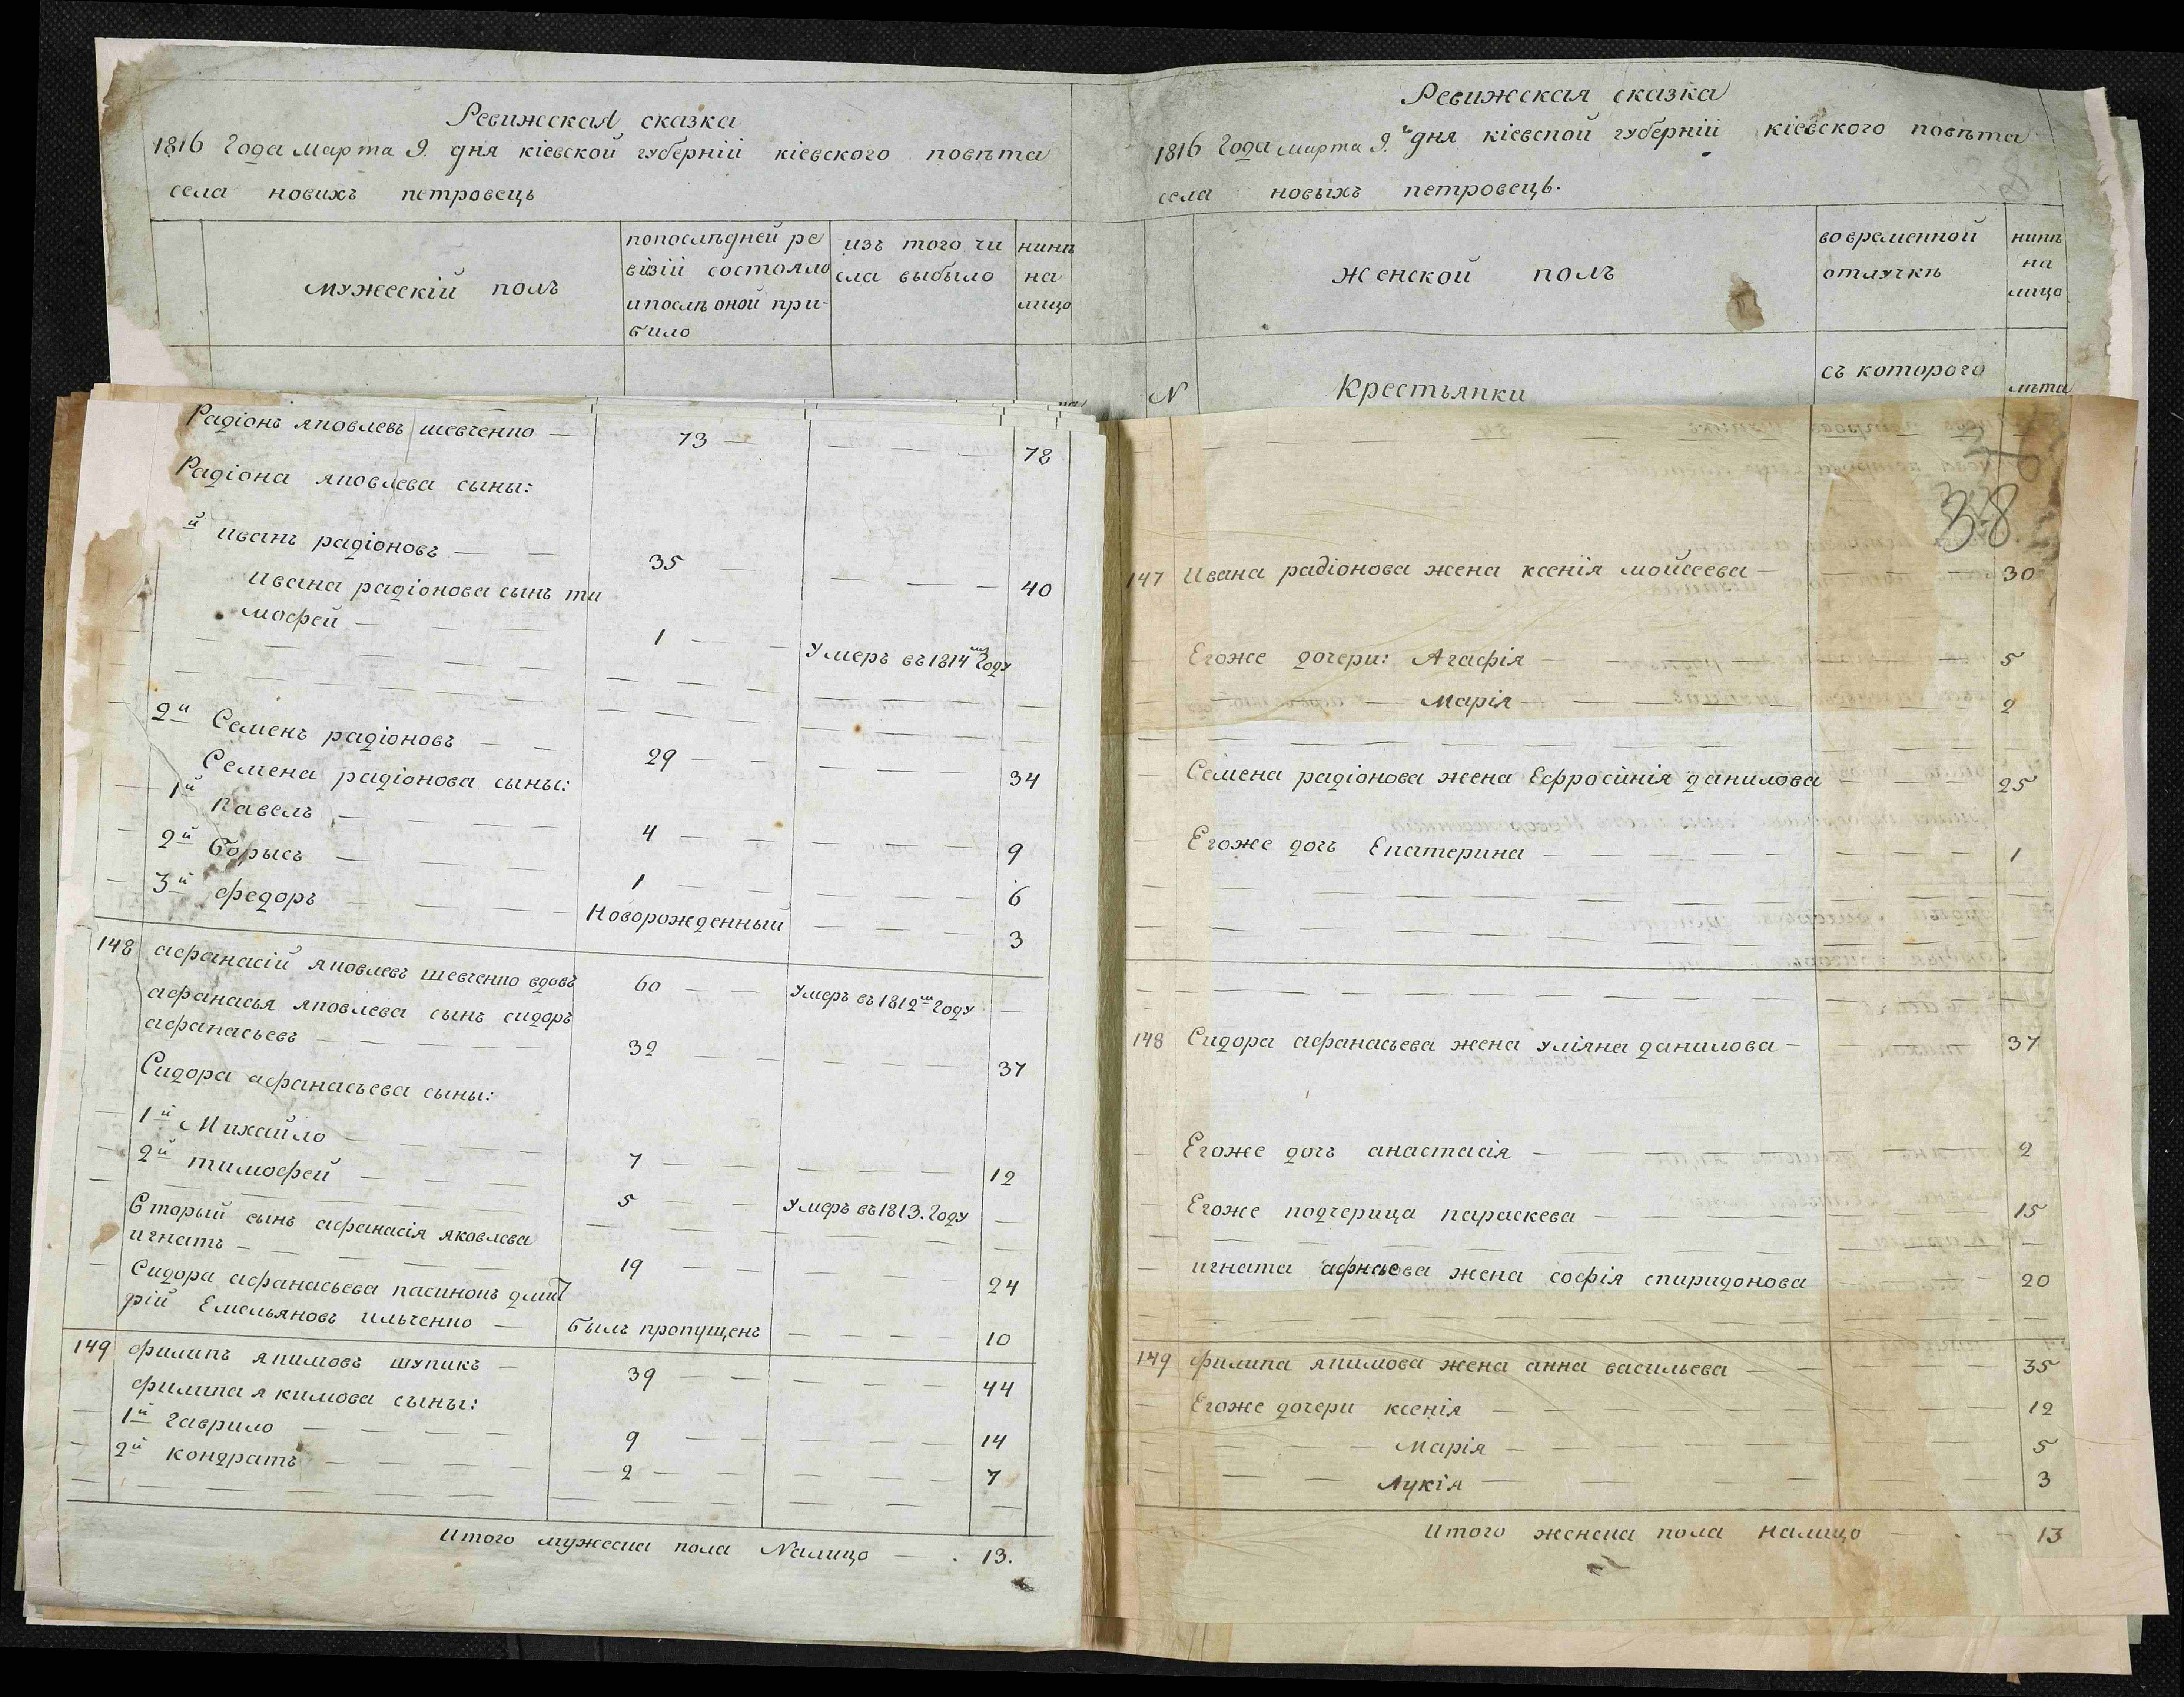 Ревижская сказка
1816 Года марта 9. дня кіевской губерніи кіевского повѣта
села новихъ петровець
мужескій полъ
попослѣдней ре
візіи состояло
ипослѣ оной при-
било
изъ того чи
сла выбыло
нинѣ
на
лицо
Радіонъ яковлевъ шевченко — 73 — — — — 78
Радіона яковлева сыны:
й иванъ радіоновъ — — 35 — — — — 40
ивана радіонова сынъ ти
мофей — — — 1 — — Умеръ въ 1814мъ Году
2й Семенъ радіоновъ — — 29 — — — — — 34
Семена радіонова сыны:
1й павелъ — — — — 4 — — — — — 9
2й борысъ — — — 1 — — — — — 6
3й федоръ — — — — Новорожденный — — — 3
148 афанасій яковлевъ шевченко вдовъ 60 — — Умеръ въ 1812мъ Году —
афанасья яковлева сынъ сидоръ
афанасьевъ — — — — 32 — — — — — 37
Сидора афанасьева сыны:
1й Михайло — — — — 7 — — — — 12
2й тимофей — — — 5 — — Умеръ въ 1813. Году —
Вторый сынъ афанасія яковлева
игнатъ — — — — 19 — — — — — 24
Сидора афанасьева пасинокъ дми
рій Емельяновъ ильченко — былъ пропущенъ — — — — 10
149 филипъ якимовъ шупикъ — 39 — — — — — 44
филипа якимова сыны:
1й гаврило — — — — 9 — — — — — 14
2й кондратъ — — — — 2 — — — — — 7
Итого мужеска пола Налицо — . 13.
Ревижская сказка
1816 Года марта 9.й дня кіевской губерніи кіевского повѣта
села новыхъ петровець.
женской полъ
вовременной
отлучкѣ
нинѣ
на
лицо
N Крестьянки
съ которого
лѣта
38
147 Ивана радіонова жена ксенія мойсеева — — — — 30
Егоже дочери: Агафія — — — — — — 5
— — — Марія — — — — — 2
Семена радіонова жена Ефросинія данилова — — — 25
Егоже дочь Екатерина — — — — — — — — 1
148 Сидора афанасьева жена уліяна данилова — — — — 37
Егоже дочь анастасія — — — — — — — 2
Егоже подчерица параскева — — — — — — 15
игната афнаьева жена софія спиридонова — — — 20
149 филипа якимова жена анна васильева — — 35
Егоже дочери ксенія — — — — — — — 12
— — — Марія — — — — — — 5
— — — Лукія — — — — — 3
Итого женска пола Налицо — . — 13